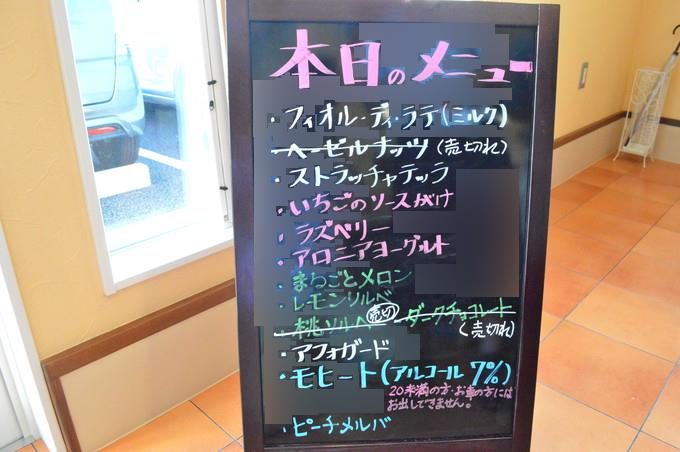 本日のメニュー
・フィオル・ディ・ラテ(ミルク)
・ヘーゼルナッツ(売切れ)
・ストラッチャテッラ
・いちごのソースがけ
・ラズベリー
・アロニアヨーグルト
・まるごとメロン
・レモンソルベ
・桃ソルベ 売切 ・ダークチョコレート
(売切れ)
・アフォガード
・モヒート(アルコール 7%)
20未満の方・お車の方には
お出しできません。
・ピーチメルバ